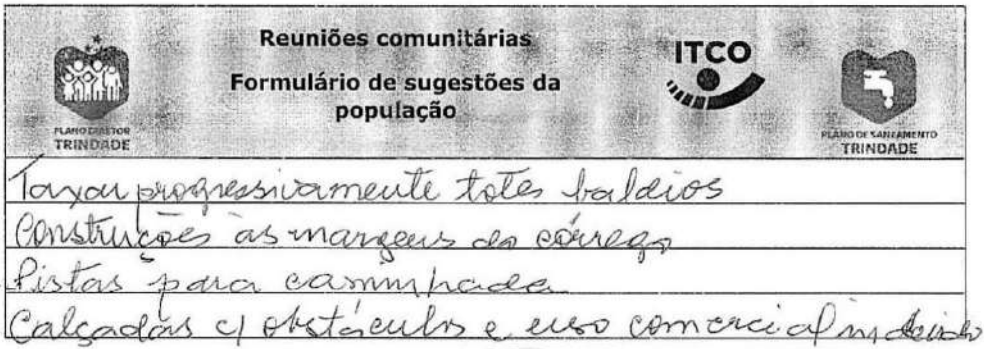 Reuniões comunitárias
Formulário de sugestões da
população
ITCO
PLANO DIRETOR
TRINDADE
PLANO DE SANEAMENTO
TRINDADE
Taxar progressivamente lotes baldios
Construções as margens do córrego
Pistas para caminhada
Calçadas c/ obstáculos e uso comercial indevido